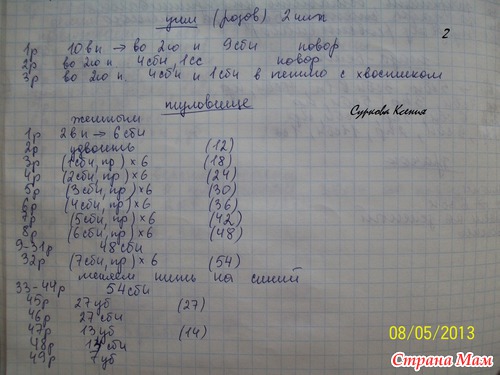 уши (розов) 2 шт
2
1р 10 вп → во 2ю п 9 сбн повор
2р во 2ю п 4 сбн, 1сс повор
3р во 2ю п. 4сбн и 1сбн в петлю с хвостиком
туловище
Суркова Ксения
желтым
1р 2 вп → 6 сбн
2р удвоить (12)
3р (1 сбн, пр) × 6 (18)
4р (2сбн, пр) × 6 (24)
5р (3 сбн, пр) × 6 (30)
6р (4 сбн, пр) × 6 (36)
7р (5 сбн, пр) × 6 (42)
8р (6 сбн, пр) × 6 (48)
9-31р 48 сбн
32р (7сбн, пр) × 6 (54)
меняем нить на синий
33-44р 54 сбн
45р 27 уб (27)
46р 27 сбн
47р 13 уб (14)
48р 14 сбн
49р 7 уб
08/05/2013
Страна Мам